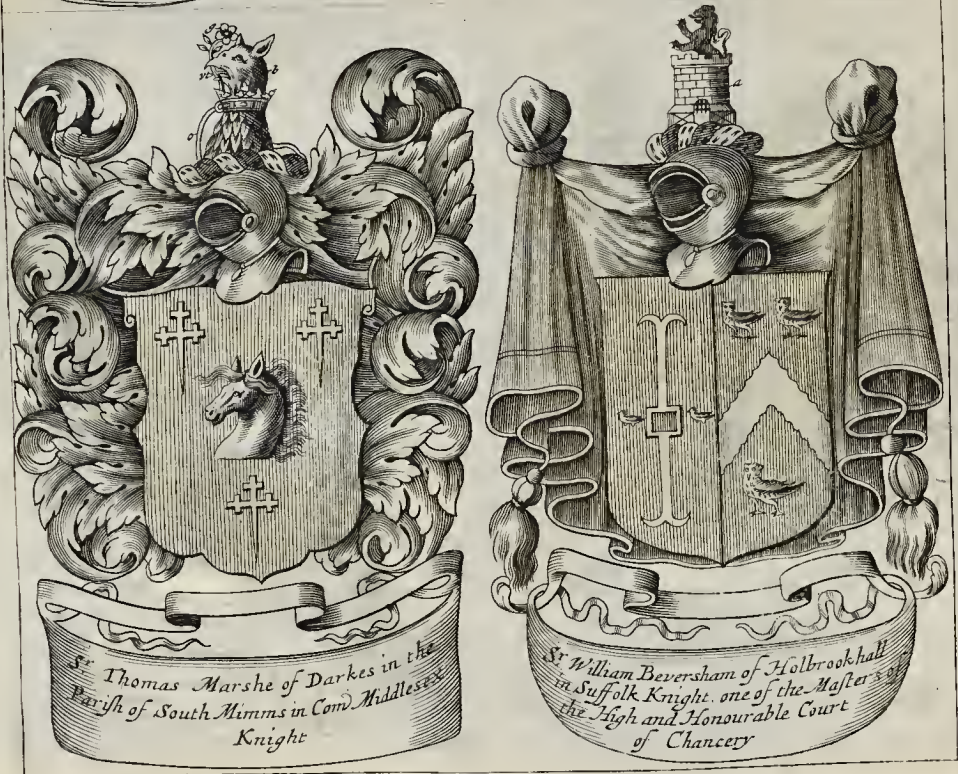 vt
b
o
a
Sr. Thomas Marshe of Darkes in the
Parish of South Mimms in Com̃ Middlesex
Knight
Sr. William Beversham of Holbrookhall
in Suffolk Knight. one of the Masters of
the High and Honourable Court
of Chancery